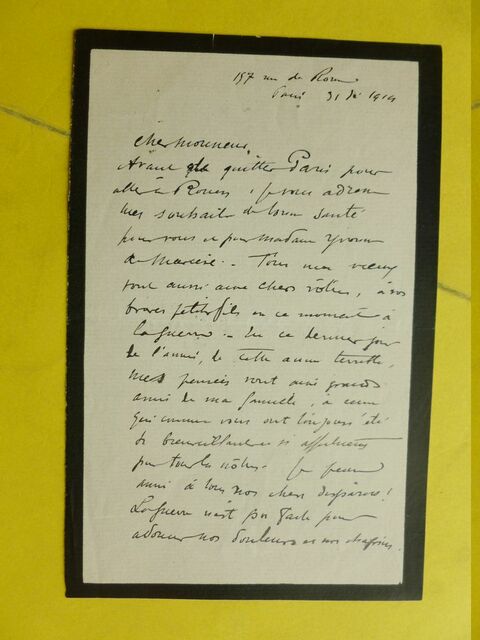 157 rue de Rome
Paris 31 Dé 1914
cher monsieur,
Avant de quitter Paris pour
aller à Rouen, je vous adresse
mes souhaits de bonne santé
pour vous et pour madame Yvonne
de . - Tous mes vœux
vont aussi aux chers vôtres, à vos
braves petits fils en ce moment à
la guerre. - En ce dernier jour
de l'année, de cette année terrible,
mes pensées vont aux grands
amis de ma famille, à ceux
qui comme vous ont toujours été
si bienveillants et si affectueux
pour tous les nôtres. Je pense
aussi à tous nos chers disparus!
La guerre n'est pas faite pour
adoucir nos douleurs et nos chagrins.